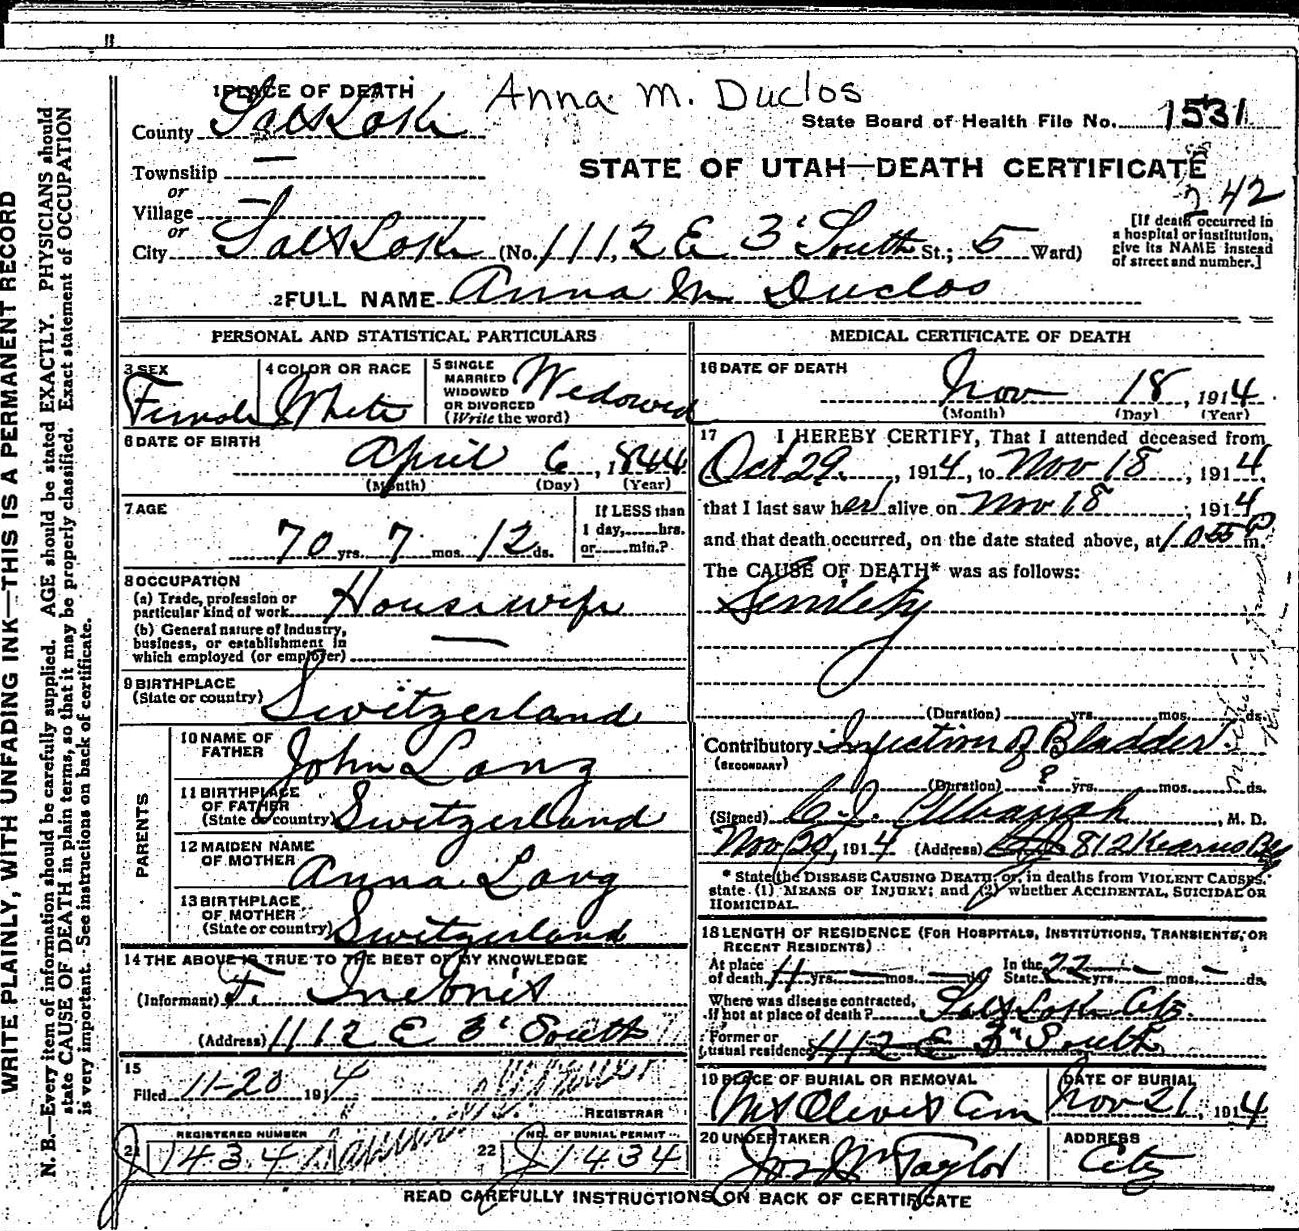 WRITE PLAINLY, WITH UNFADING INK—THIS IS A PERMANENT RECORD
N. B.—Every item of information should be carefully supplied. AGE should be stated EXACTLY. PHYSICIANS should
state CAUSE OF DEATH in plain terms, so that it may be properly classified. Exact statement of OCCUPATION
is very important. See instructions on back of certificate.
Anna M. Duclos
1 PLACE OF DEATH
County Salt Lake
State Board of Health File No. 1531
Township —
STATE OF UTAH—DEATH CERTIFICATE
or
Village —
242
or
City Salt Lake (No. 1112 E 3' South St.; 5 Ward)
[If death occurred in
a hospital or institution,
give its NAME instead
of street and number.]
2 FULL NAME Anna M Duclos
PERSONAL AND STATISTICAL PARTICULARS
3 SEX
Female
4 COLOR OR RACE
White
5 SINGLE
MARRIED
WIDOWED
OR DIVORCED
(Write the word)
Widowed
6 DATE OF BIRTH
April 6, 1844
(Month) (Day) (Year)
7 AGE
70 yrs. 7 mos. 12 ds.
If LESS than
1 day, hrs.
or min.?
8 OCCUPATION
(a) Trade, profession or
particular kind of work Housewife
(b) General nature of Industry,
business, or establishment in
which employed (or employer) —
9 BIRTHPLACE
(State or country) Switzerland
PARENTS
10 NAME OF
FATHER John Lang
11 BIRTHPLACE
OF FATHER
(State or country) Switzerland
12 MAIDEN NAME
OF MOTHER Anna Lang
13 BIRTHPLACE
OF MOTHER
(State or country) Switzerland
14 THE ABOVE IS TRUE TO THE BEST OF MY KNOWLEDGE
(Informant) F.
(Address) 1112 E 3' South
15
Filed 11-20 1914
REGISTRAR
21 REGISTERED NUMBER
J 1434
22 NO. OF BURIAL PERMIT
J 1434
MEDICAL CERTIFICATE OF DEATH
16 DATE OF DEATH
Nov 18, 1914
(Month) (Day) (Year)
17 I HEREBY CERTIFY, That I attended deceased from
Oct 29, 1914, to Nov 18, 1914
that I last saw her alive on Nov 18, 1914
and that death occurred, on the date stated above, at 10 55 P m.
The CAUSE OF DEATH* was as follows:
Senility
(Duration) yrs. mos. ds.
Contributory Infection of Bladder
(SECONDARY)
(Duration) ? yrs. mos. ds.
(Signed) C. J. M. D.
Nov 20, 1914 (Address) 812 Kearns Bg
* State the DISEASE CAUSING DEATH, or, in deaths from VIOLENT CAUSES,
state (1) MEANS OF INJURY; and (2) whether ACCIDENTAL, SUICIDAL OR
HOMICIDAL.
18 LENGTH OF RESIDENCE (FOR HOSPITALS, INSTITUTIONS, TRANSIENTS, OR
RECENT RESIDENTS)
At place
of death 11 yrs. — mos. — ds.
In the
State 22 yrs. — mos. — ds.
Where was disease contracted,
If not at place of death? Salt Lake City
Former or
usual residence 1112 E 3" South
19 PLACE OF BURIAL OR REMOVAL
Mt Olivet Cem
DATE OF BURIAL
Nov 21, 1914
20 UNDERTAKER
Jos Wm Taylor
ADDRESS
City
READ CAREFULLY INSTRUCTIONS ON BACK OF CERTIFICATE